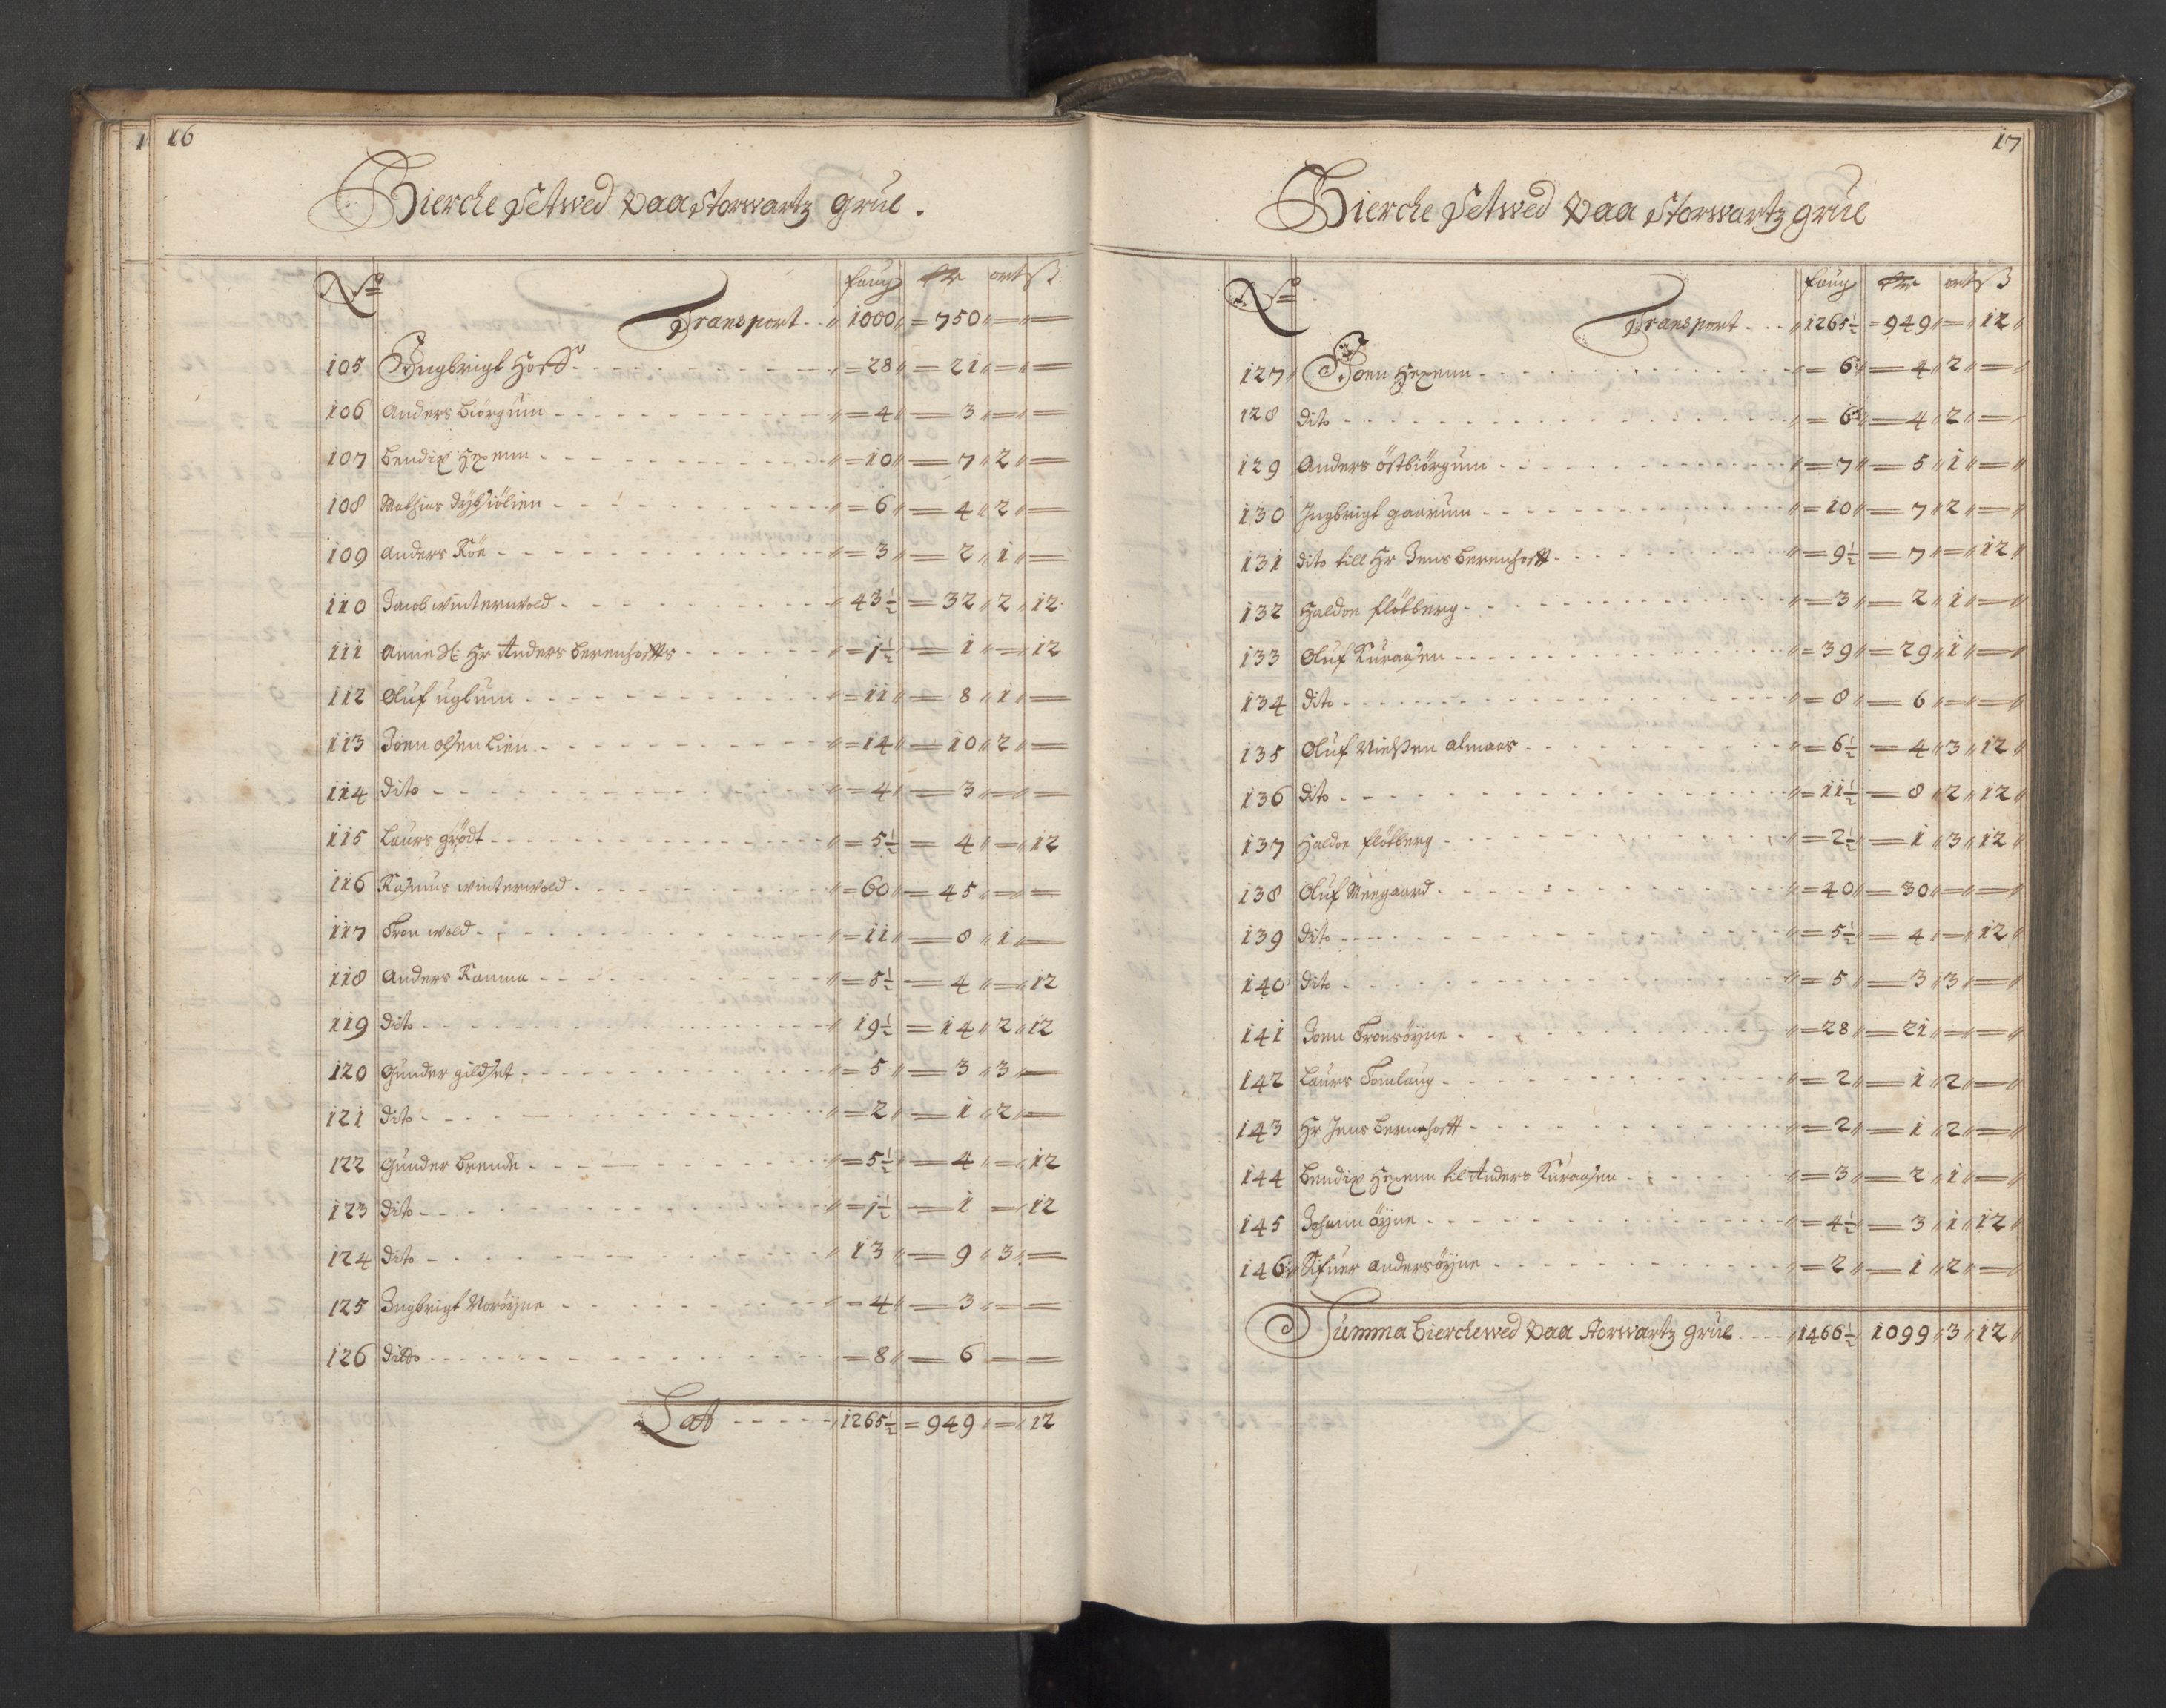 16
Bierche Setwed Paa Storwartz grue.
No favn rdr ort ß
Transport 1000 = 750 = =
105 Ingbrigt Hoff = 28 = 21 = =
106 Anders biörgum = 4 = 3 = =
107 bendix Hexemm = 10 = 7 2 =
108 Mathias = 6 = 4 2 =
109 Anders Röe = 3 = 2 1 =
110 Jacob winterwold 43½ = 32 2 12
111 Anne Sl: Hr Anders berenhoffts = 1½ = 1 = 12
112 Oluf uglum = 11 = 8 1 =
113 Joen olsen Lien = 14 = 10 2 =
114 dito = 4 = 3 = =
115 Laurs grödt = 5½ = 4 = 12
116 Rasmus winterwold = 60 = 45 = =
117 Tron wold = 11 = 8 1 =
118 Anders Ramma = 5½ = 4 = 12
119 dito 19½ = 14 2 12
120 Gunder gildset = 5 = 3 3 =
121 dito = 2 = 1 2 =
122 Gunder brende = 5½ = 4 = 12
123 dito = 1½ = 1 = 12
124 dito 13 = 9 3 =
125 Ingbrigt Norøyne = 4 = 3 = =
126 ditto = 8 = 6 = =
Lat 1265½ = 949 = 12
17
Bierche Setwed Paa Storwartz grue
No favn rdr ort ß
Transport 1265½ = 949 = 12
127 Joen Hexemm = 6 = 4 2 =
128 dito = 6 = 4 2 =
129 Anders östbiörgum = 7 = 5 1 =
130 Ingbrigt gaarum = 10 = 7 2 =
131 dito till Hr Jens berenhofft = 9½ = 7 = 12
132 Haldor flötberg = 3 = 2 1 =
133 Oluf Kuraasen = 39 = 29 1 =
134 dito = 8 = 6 = =
135 Oluf Nießen almaas = 6½ = 4 3 12
136 dito = 11½ = 8 2 12
137 Haldor flötberg = 2½ = 1 3 12
138 Oluf = 40 = 30 = =
139 dito = 5½ = 4 = 12
140 dito = 5 = 3 3 =
141 Joen Tronsöyne = 28 = 21 = =
142 Laurs Tomlaug = 2 = 1 2 =
143 Hr Jens bernhofft = 2 = 1 2 =
144 bendix Hexemm til Anders Kuraasen = 3 = 2 1 =
145 Johann öyne = 4½ = 3 1 12
146 Sifuer andersöyne = 2 = 1 2 =
Summa bierchewed Paa storwartz grue 1466½ 1099 3 12